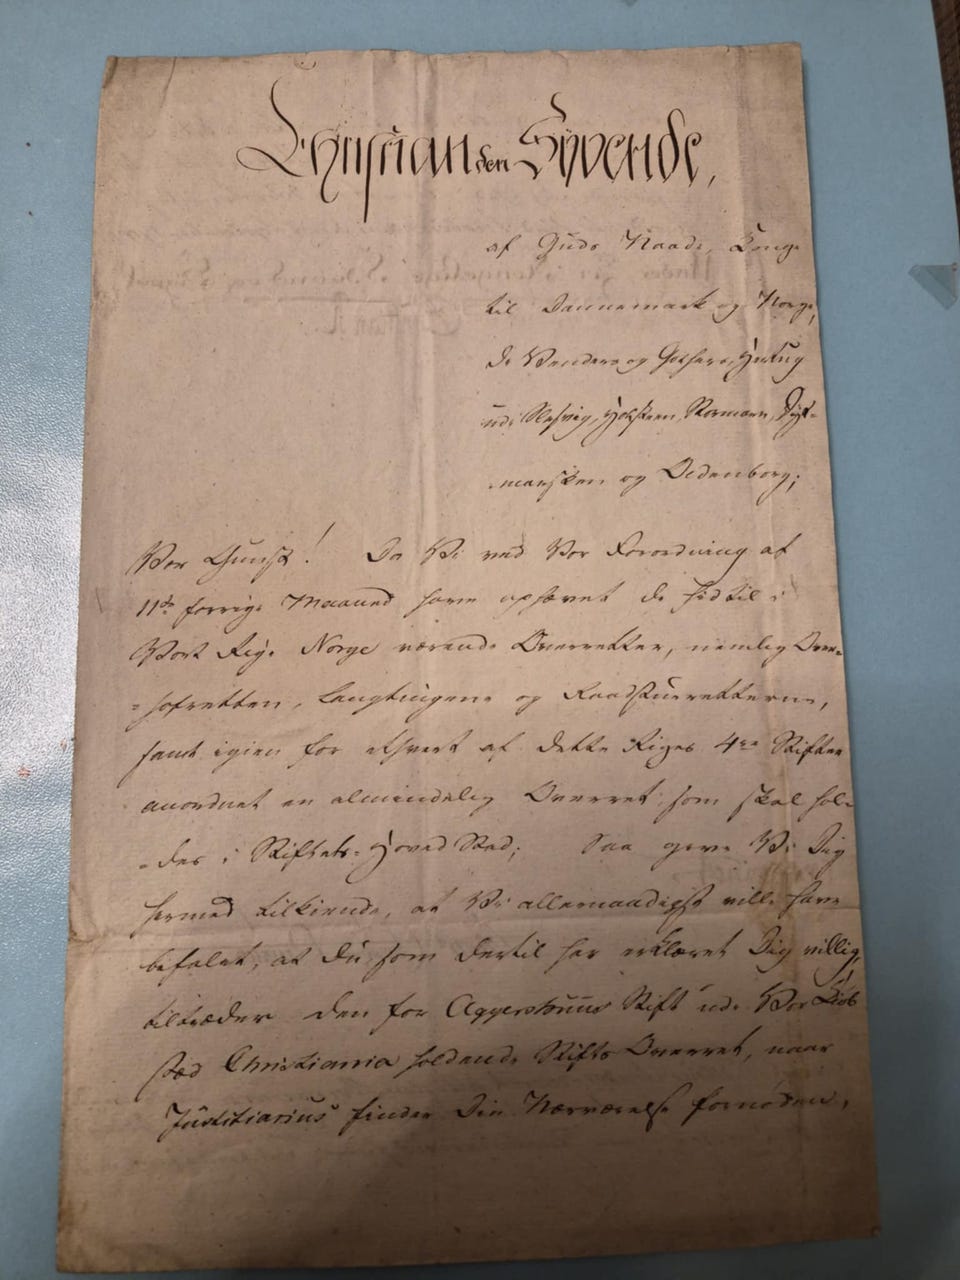 Christian den Syvende,
af Guds Naade, Konge
til Dannemark og Norge,
de Venders og Gothers, Hertug
udi Slesvig, Holsteen, Stormarn, Dyt-
marsken og Oldenborg;
Vor Gunst! Da Vi ved Vor Forordning af
11te forrige Maaned have ophævet de hidtil i
Vort Rige Norge værende Overretter, nemlig Over-
=hofretten, Laugtingene og Raadstueretterne,
samt igien for ethvert af dette Riges 4re Stifter
anordnet en almindelig Overret, som skal hol-
=des i Stiftets=Hoved Stad; Saa give Vi Dig
hermed tilkiende, at Vi allernaadigst ville have
befalet, at du som dertil har erklæret Dig villig,
tiltræder den for Aggershuus Stift udi Vor Kiøb
stæd Christiania holdende Stifts Overret, naar
Justitiarius finder Din Nærværelse fornøden,